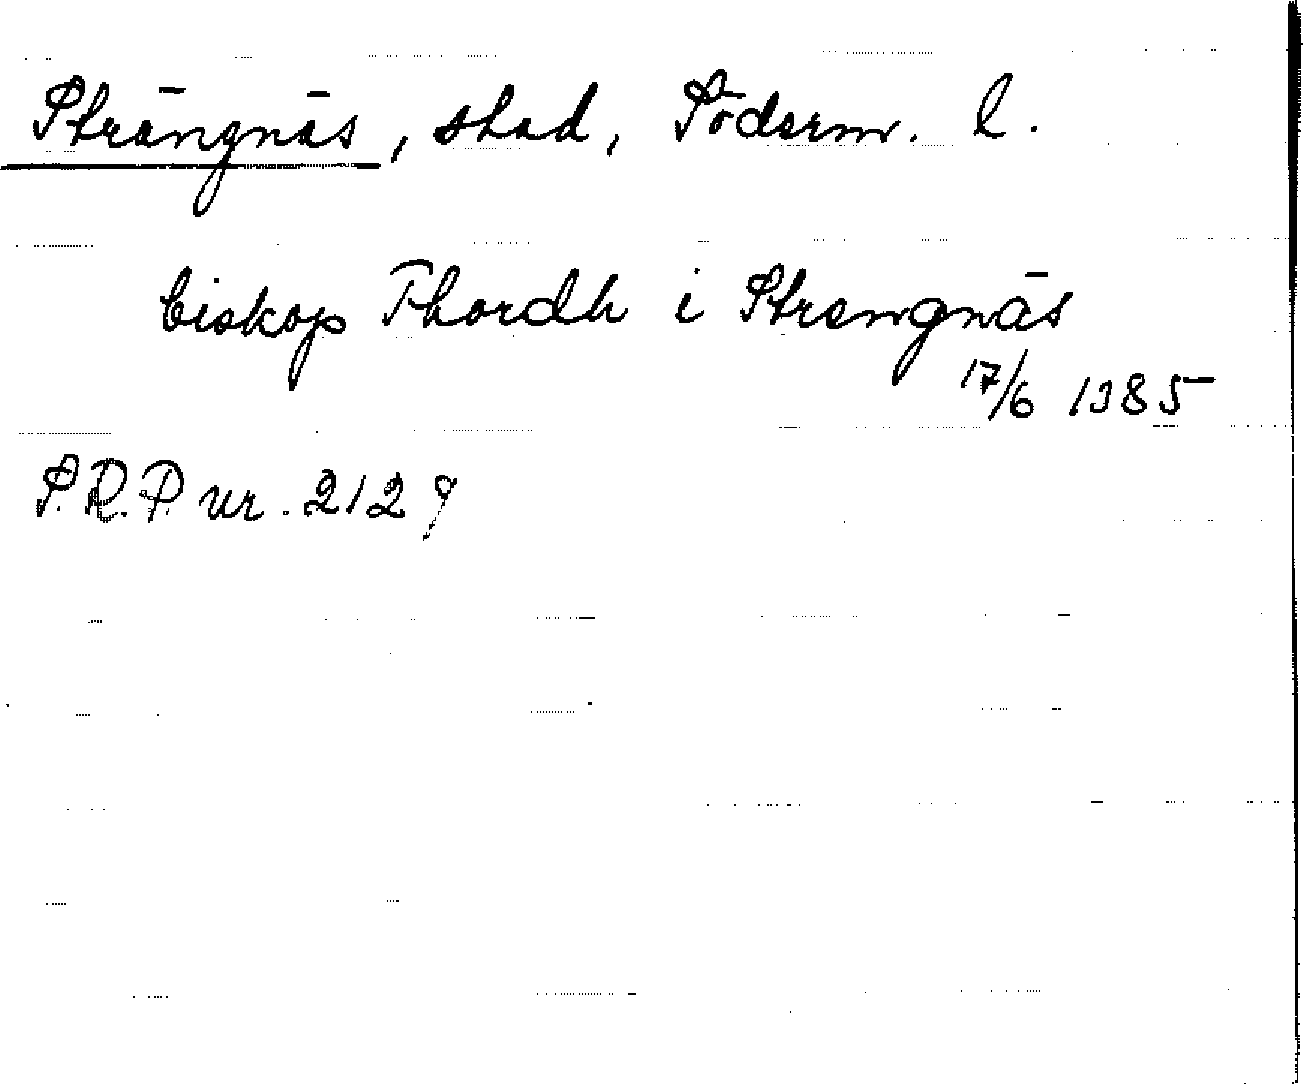 Strängnäs, stad, Söderm. l.
biskop Thordh i Strengnäs
17/6 1385
S.R.P. nr. 2129